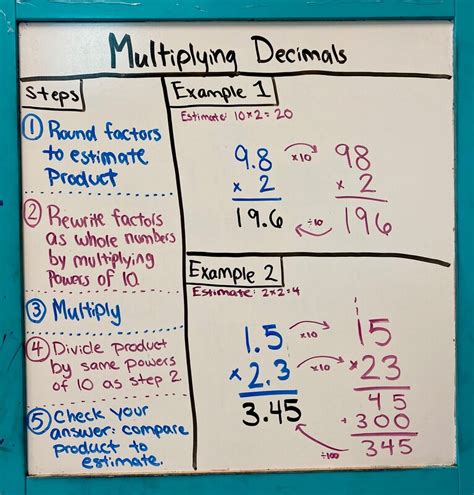 Multiplying Decimals
Steps
① Round factors
to estimate
Product
② Rewrite factors
as whole numbers
by multiplying
Powers of 10.
③ Multiply
④ Divide product
by same powers
of 10 as step 2
⑤ Check your
answer: compare
product to
estimate.
Example 1
Estimate: 10×2=20
9.8 ×10 98
× 2 × 2
19.6 ÷10 196
Example 2
Estimate: 2×2=4
1
1.5 ×10 15
×2.3 ×10 ×23
3.45 45
+300
÷100 345